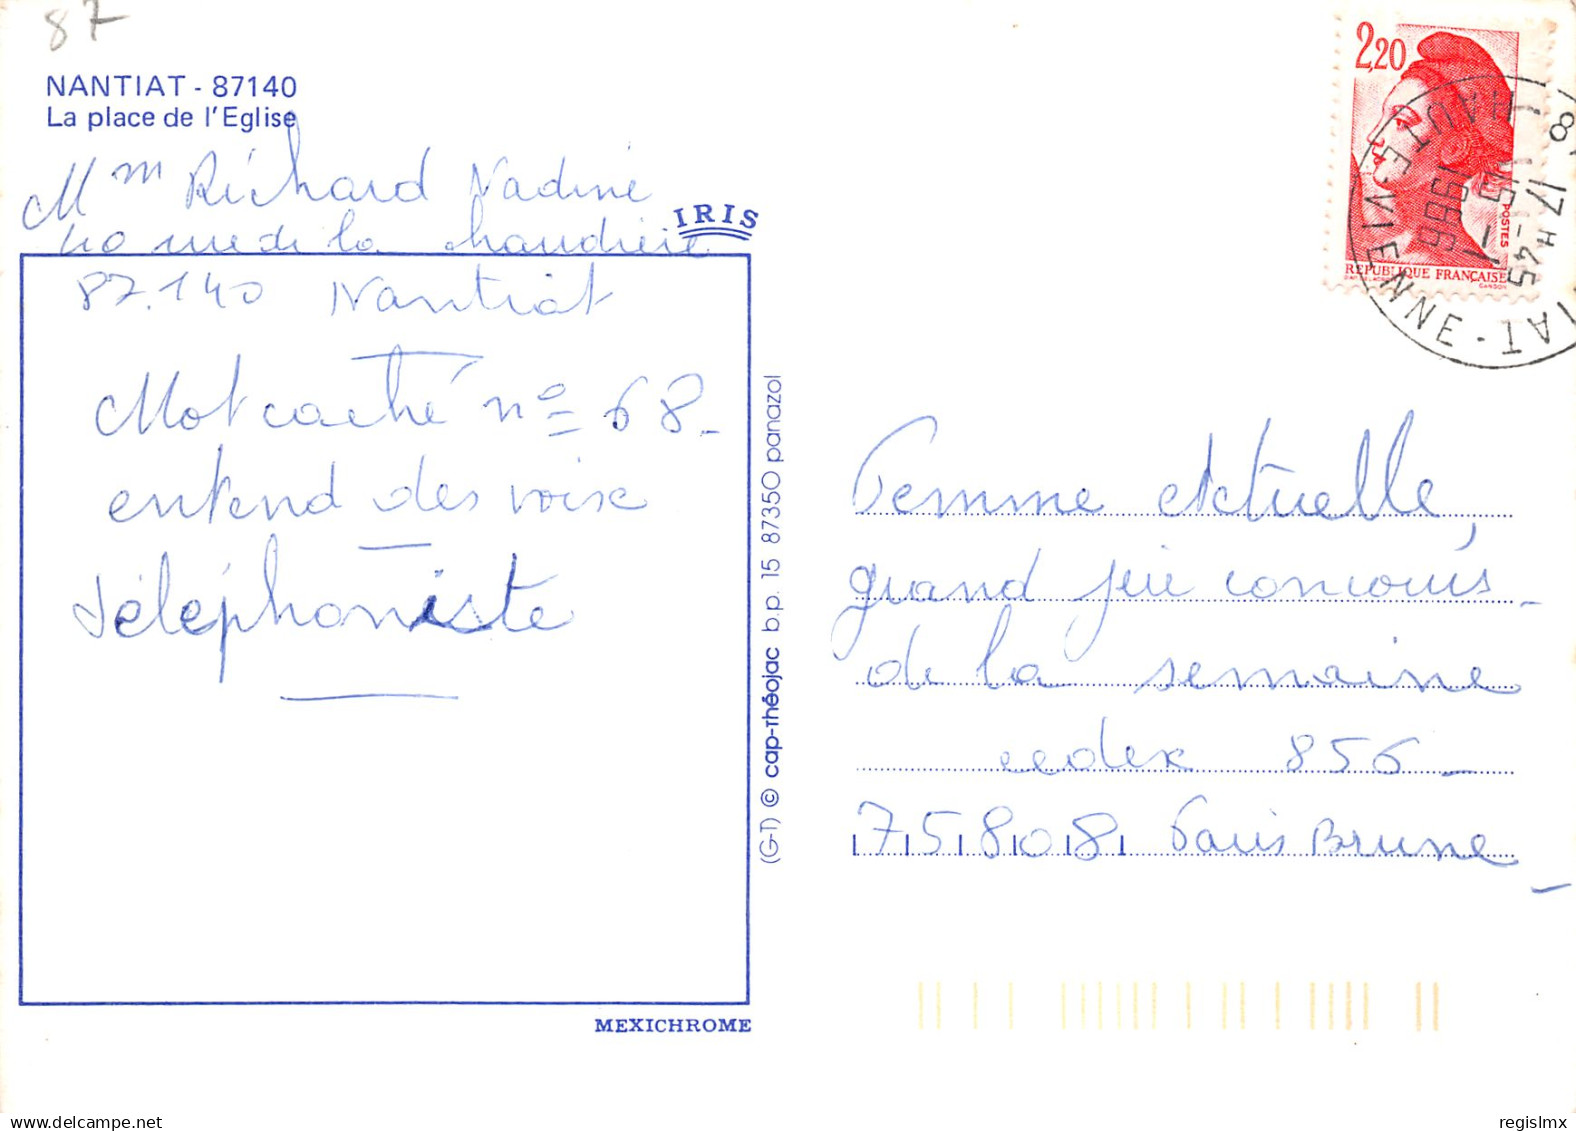 87
NANTIAT - 87140
La place de l'Eglise
Mm Richard Nadine
40 rue de la chaudière
IRIS
87.140 Nantiat
Mot caché n° 68-
entend des voix
Téléphoniste
MEXICHROME
(G-T) © cap-théojac b.p. 15 87350 panazol
2,20
POSTES
REPUBLIQUE FRANÇAISE
GANDON
17H45
15-1
HAUTE-VIENNE
Femme Actuelle,
grand jeu concours-
de la semaine
cedex 856-
75808 Paris Brune-
regislmx